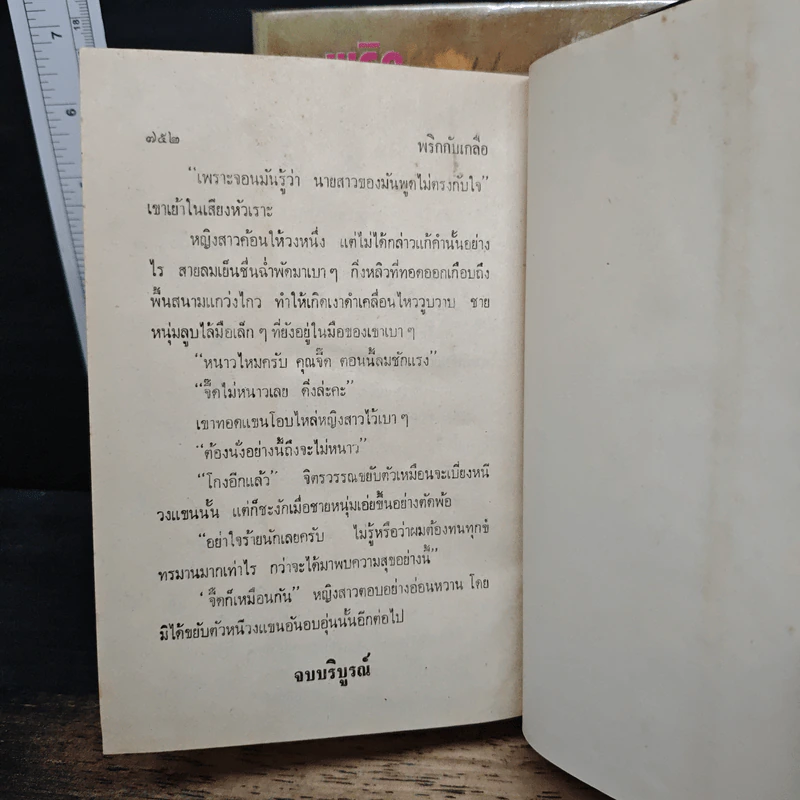 พริก
18
7
6
๗๕๒ พริกกับเกลือ
“เพราะจอนมันรู้ว่า นายสาวของมันพูดไม่ตรงกับใจ”
เขาเย้าในเสียงหัวเราะ
หญิงสาวค้อนให้วงหนึ่ง แต่ไม่ได้กล่าวแก้คำนั้นอย่าง
ไร สายลมเย็นชื่นฉ่ำพัดมาเบา ๆ กิ่งหลิวที่ทอดออกเกือบถึง
พื้นสนามแกว่งไกว ทำให้เกิดเงาดำเคลื่อนไหววูบวาบ ชาย
หนุ่มลูบไล้มือเล็ก ๆ ที่ยังอยู่ในมือของเขาเบา ๆ
“หนาวไหมครับ คุณจี๊ด ตอนนี้ลมชักแรง”
“จี๊ดไม่หนาวเลย ดิ่งล่ะคะ”
เขาทอดแขนโอบไหล่หญิงสาวไว้เบา ๆ
“ต้องนั่งอย่างนี้ถึงจะไม่หนาว”
“โกงอีกแล้ว” จิตรวรรณขยับตัวเหมือนจะเบี่ยงหนี
วงแขนนั้น แต่ก็ชะงักเมื่อชายหนุ่มเอ่ยขึ้นอย่างตัดพ้อ
“อย่าใจร้ายนักเลยครับ ไม่รู้หรือว่าผมต้องทนทุกข์
ทรมานมากเท่าไร กว่าจะได้มาพบความสุขอย่างนี้”
‘จี๊ดก็เหมือนกัน” หญิงสาวตอบอย่างอ่อนหวาน โดย
มิได้ขยับตัวหนีวงแขนอันอบอุ่นนั้นอีกต่อไป
จบบริบูรณ์